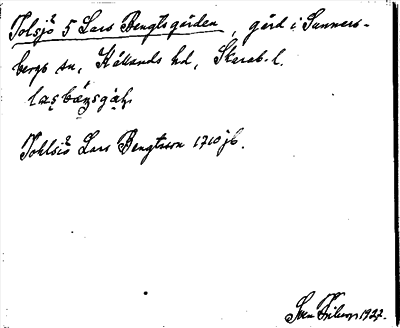 Tolsjö 5 Lars Bengtsgården, gård i Sunners-
bergs sn, Kållands hd, Skarab. l.
Tohlsiö Lars Bengtsson 1710 jb.
Sven 1927.